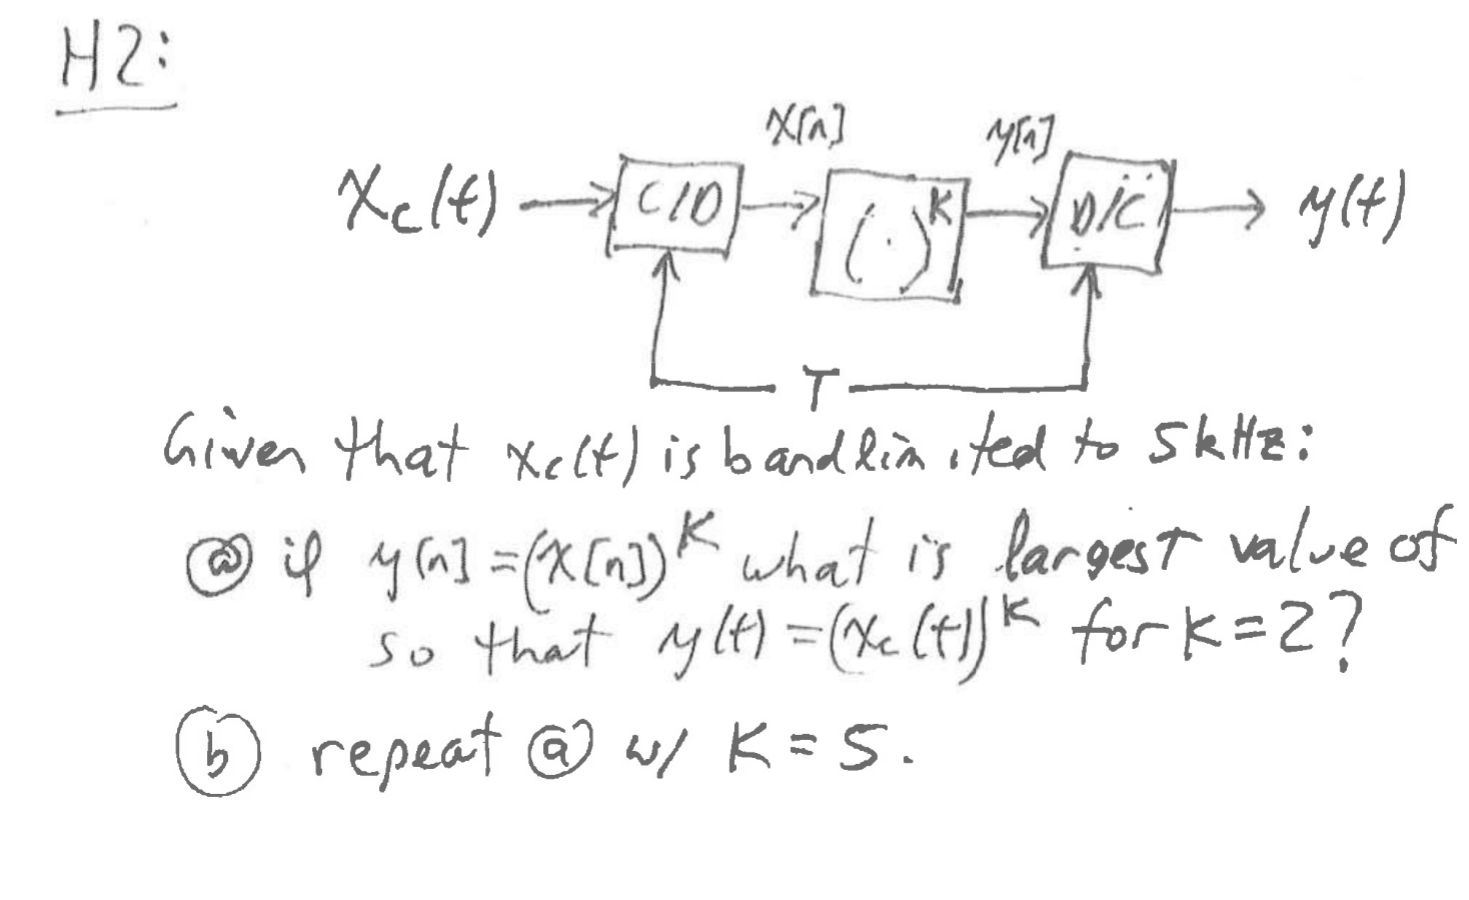 H2:
x[n] y[n]
Xc(t) C/D (·)^K D/C y(t)
T
Given that xc(t) is bandlimited to 5kHz:
(a) if y[n]=(x[n])^K what is largest value of
so that y(t)=(xc(t))^K for K=2?
(b) repeat (a) w/ K=5.